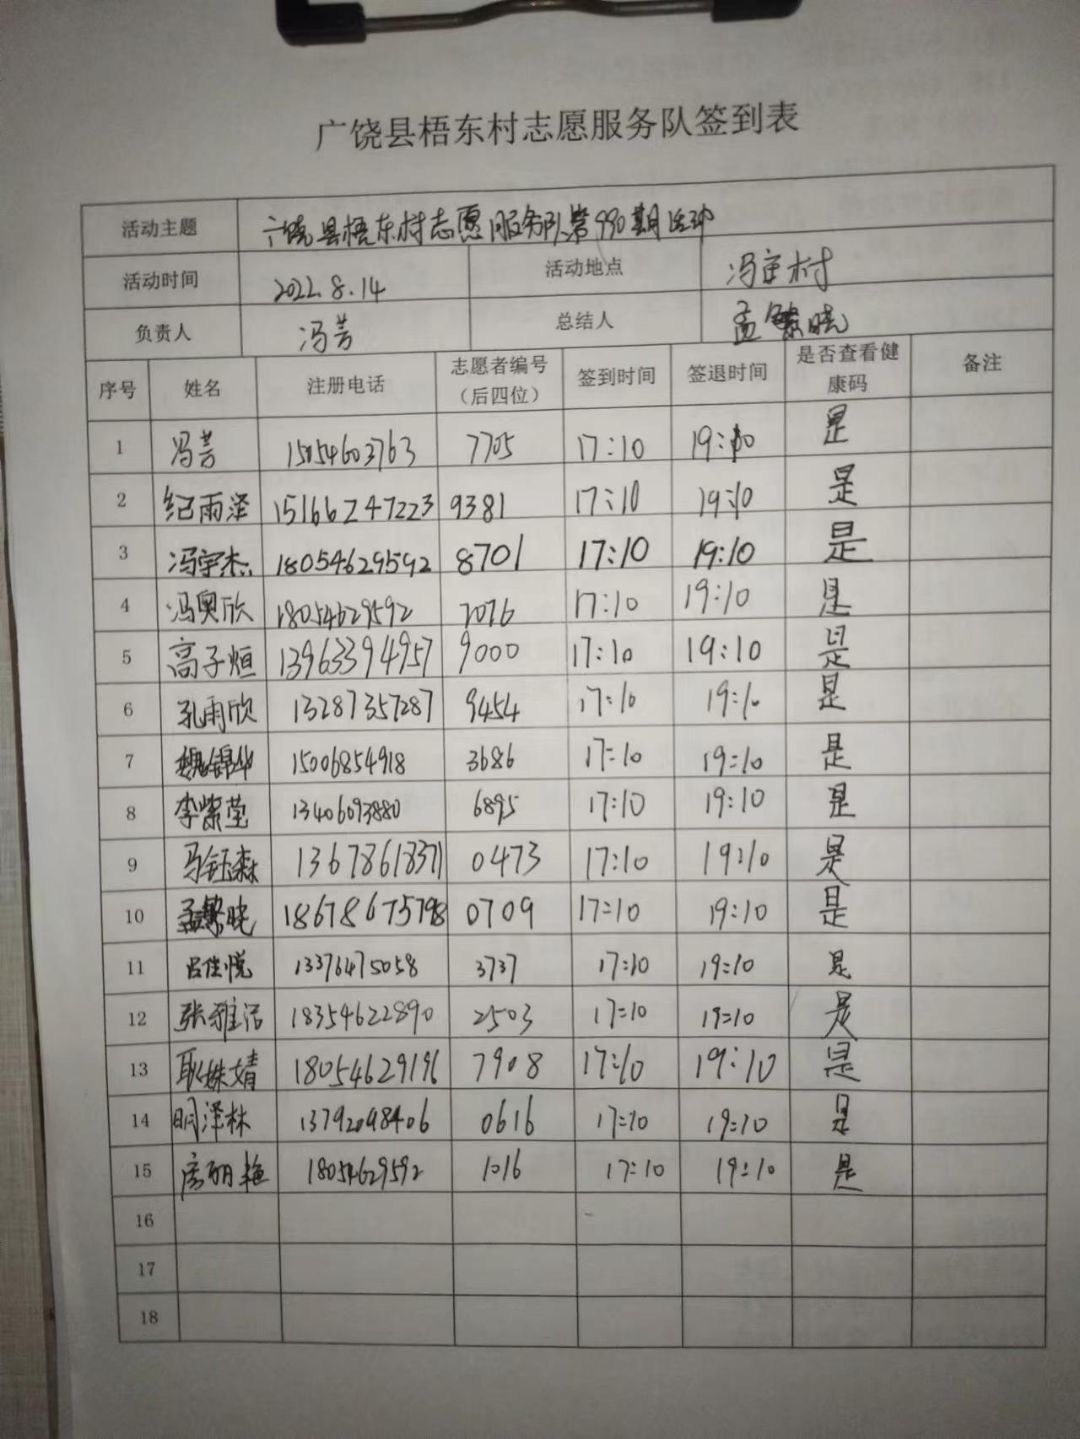 广饶县梧东村志愿服务队签到表
活动主题 广饶县梧东村志愿服务队第990期活动
活动时间 2022.8.14 活动地点 冯宅村
负责人 冯芳 总结人 孟繁晓
序号 姓名 注册电话 志愿者编号（后四位） 签到时间 签退时间 是否查看健康码 备注
1 冯芳 15054603763 7705 17:10 19:10 是
2 纪雨泽 15166247223 9381 17:10 19:10 是
3 冯宇杰 18054629592 8701 17:10 19:10 是
4 冯奥欣 18054629592 7076 17:10 19:10 是
5 高子恒 13963394957 9000 17:10 19:10 是
6 孔雨欣 13287357287 9454 17:10 19:10 是
7 魏锦华 15006854918 3686 17:10 19:10 是
8 李紫莹 13406093880 6895 17:10 19:10 是
9 马钰森 13678618371 0473 17:10 19:10 是
10 孟繁晓 18678675798 0709 17:10 19:10 是
11 吕佳悦 13376475058 3737 17:10 19:10 是
12 张雅洁 18354622890 2503 17:10 19:10 是
13 耿姝婧 18054629196 7908 17:10 19:10 是
14 明泽林 13792098406 0616 17:10 19:10 是
15 房明艳 18054629592 1016 17:10 19:10 是
16
17
18